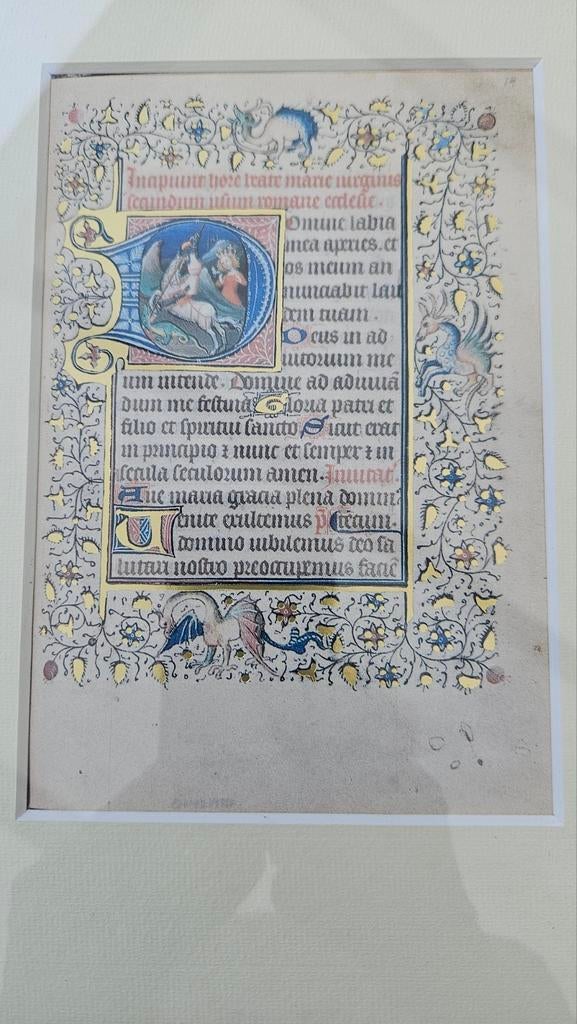 Incipiunt hore beate marie uirginis
secundum usum romane ecclesie.
Domine labia
mea aperies. et
os meum an
nunciabit lau
dem tuam.
Deus in ad
iutorium me
um intende. Domine ad adiuuā
dum me festina Gloria patri et
filio et spiritui sancto Sicut erat
in principio ⁊ nunc et semper ⁊ in
secula seculorum amen. Inuitat.
Aue maria gracia plena domin
Uenite exultemus p̄s tecum.
domino iubilemus deo sa
lutari nostro preocupemus facie